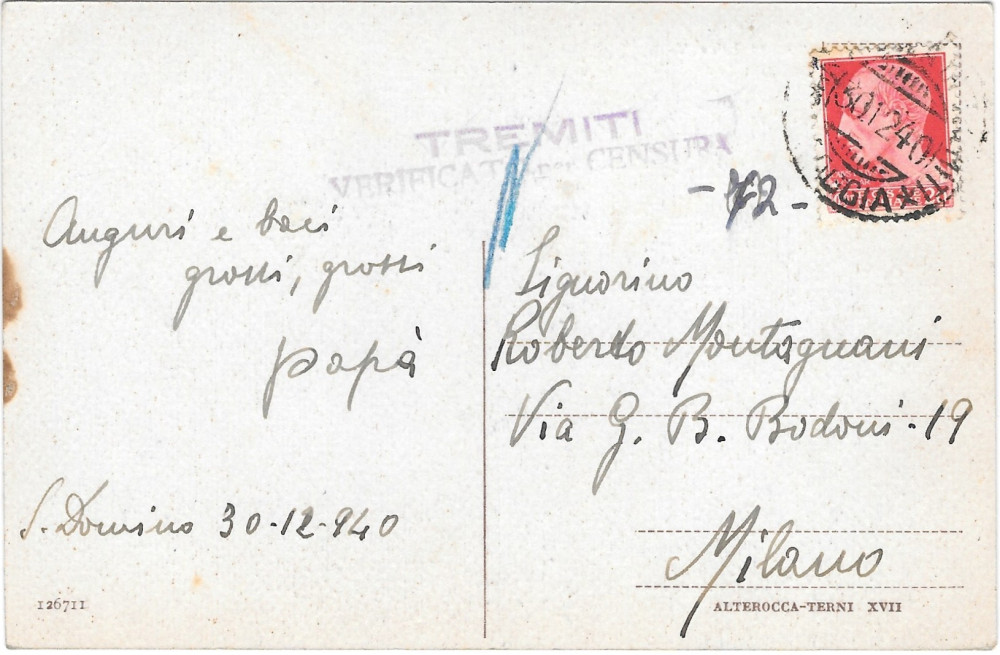 TREMITI
VERIFICATO per CENSURA
-42-
30 12 40
FOGGIA
Auguri e baci
grossi, grossi
papà
S. Domino 30-12-940
Signorino
Roberto Montagnani
Via G. B. Bodoni-19
Milano
126711
ALTEROCCA-TERNI XVII